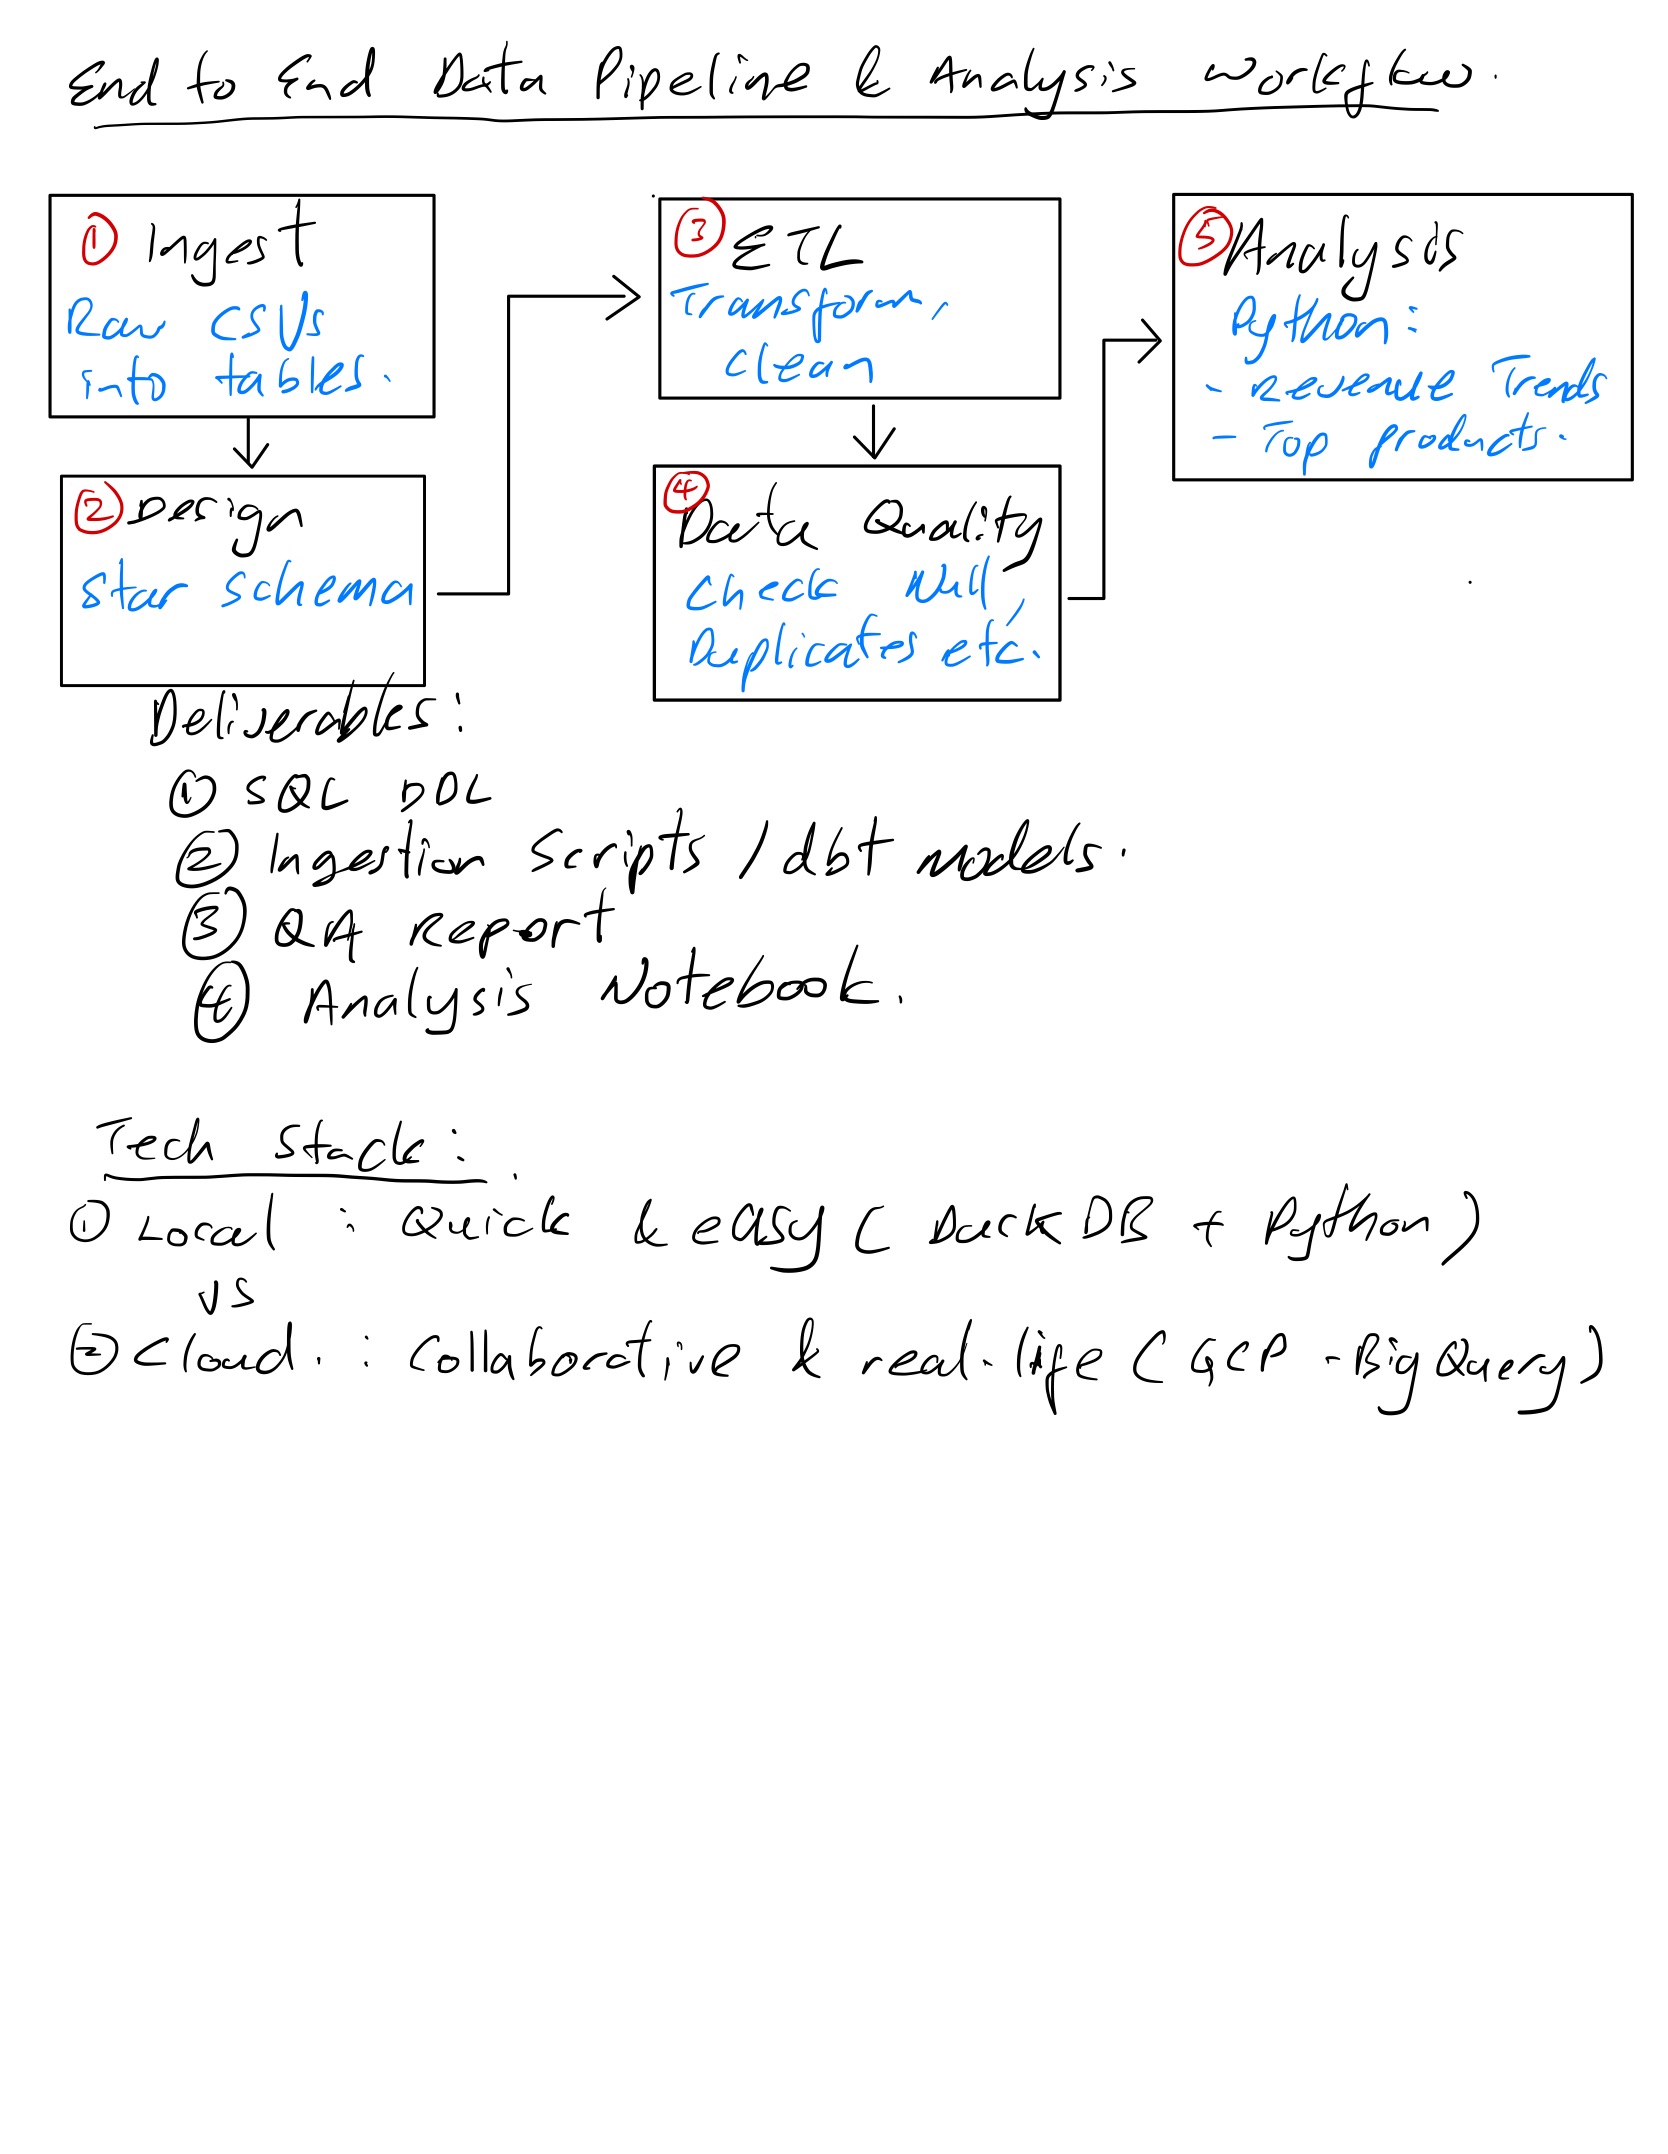 End to End Data Pipeline & Analysis Workflow.
① Ingest
Raw CSVs
into tables.
② Design
Star schema
③ ETL
Transform,
clean
④ Data Quality
Check Null,
Duplicates etc.
⑤ Analysis
Python:
- Revenue Trends
- Top products.
Deliverables:
① SQL DDL
② Ingestion Scripts / dbt models.
③ QA Report
④ Analysis Notebook.
Tech Stack:
① Local : Quick & easy ( DuckDB + Python )
vs
② Cloud. : Collaborative & real-life ( GCP - BigQuery )